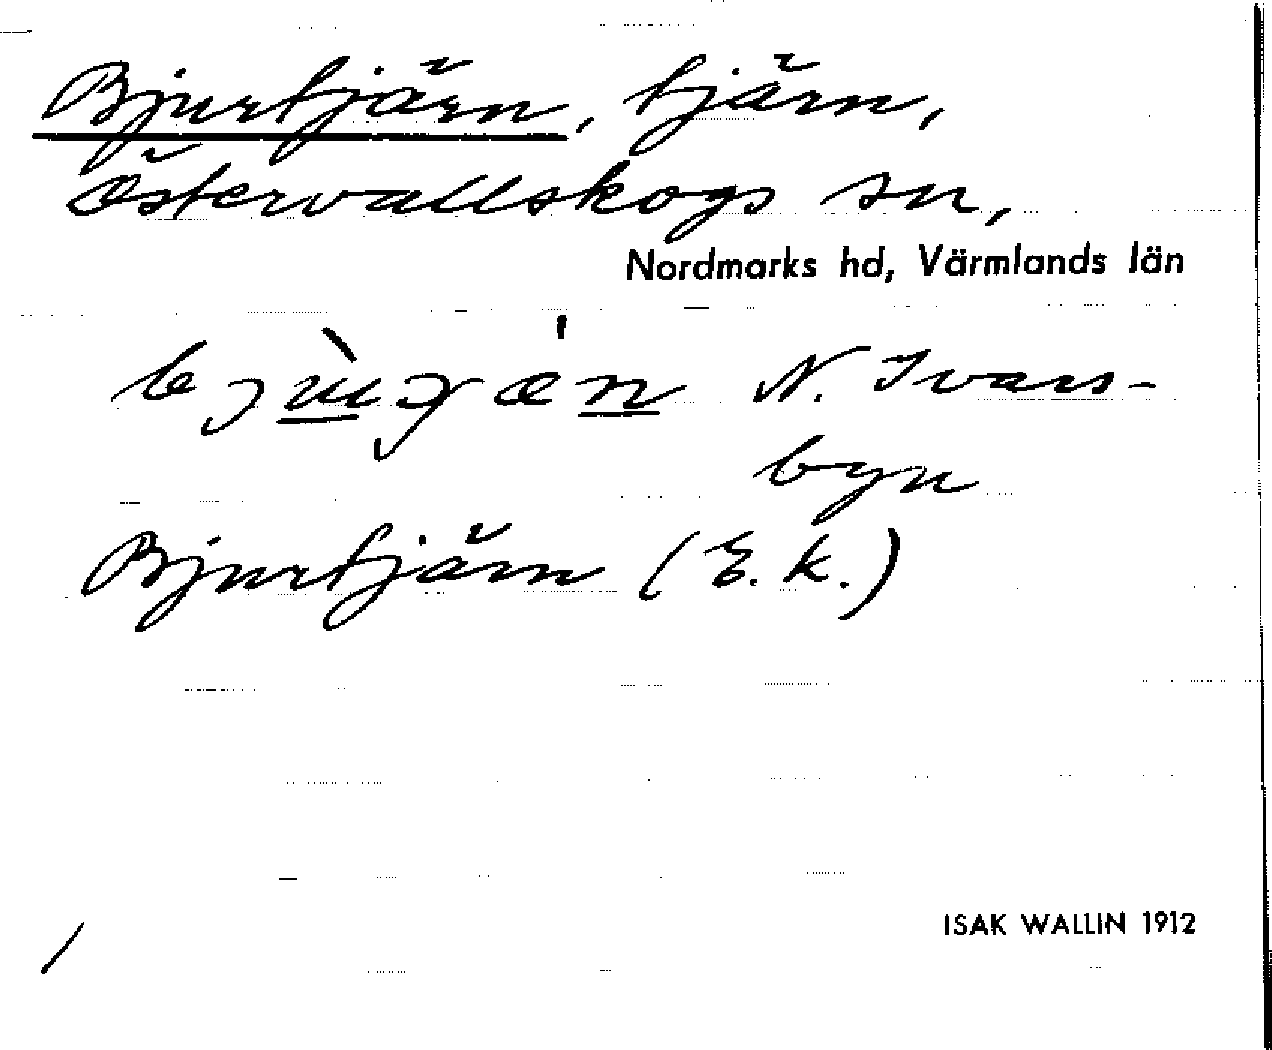 Bjurtjärn, tjärn,
Östervallskogs sn,
Nordmarks hd, Värmlands län
N. Ivars-
byn
Bjurtjärn (E. k.)
ISAK WALLIN 1912